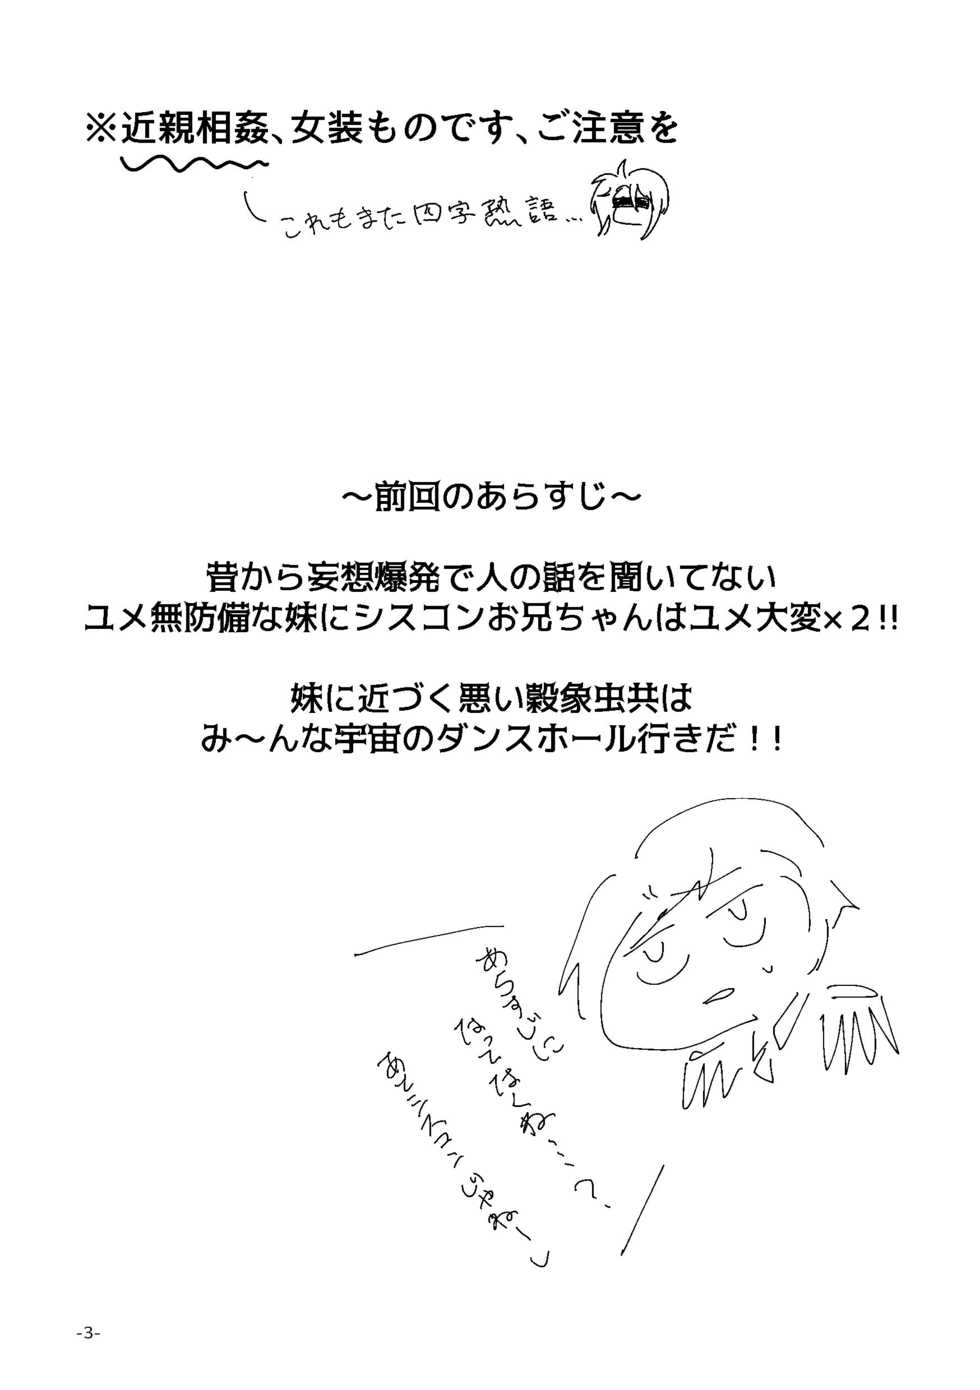 ※近親相姦、女装ものです、ご注意を
これもまた四字熟語…
～前回のあらすじ～
昔から妄想爆発で人の話を聞いてない
ユメ無防備な妹にシスコンお兄ちゃんはユメ大変×２!!
妹に近づく悪い穀象虫共は
み～んな宇宙のダンスホール行きだ！！
あらすじに
なってなくね…？
あとシスコンじゃねーし
-3-